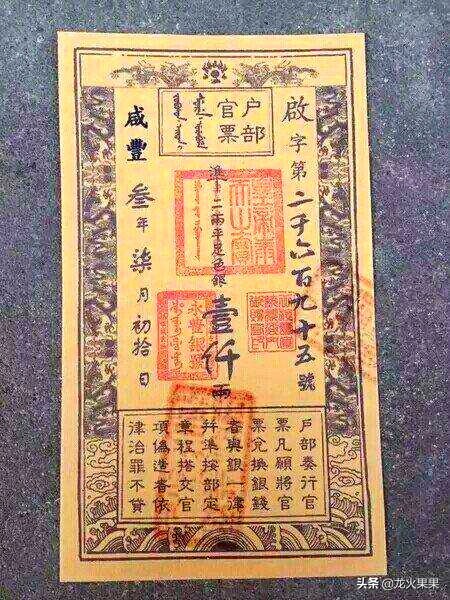 户部
官票
啟字第二千六百九十五號
準二兩平足色銀壹仟兩
永豐銀號
咸豐叁年柒月初拾日
户部奏行官
票凡願將官
票兑換銀錢
者與銀一律
并準按部定
章程搭交官
項偽造者依
律治罪不貸
头条 @龙火果果